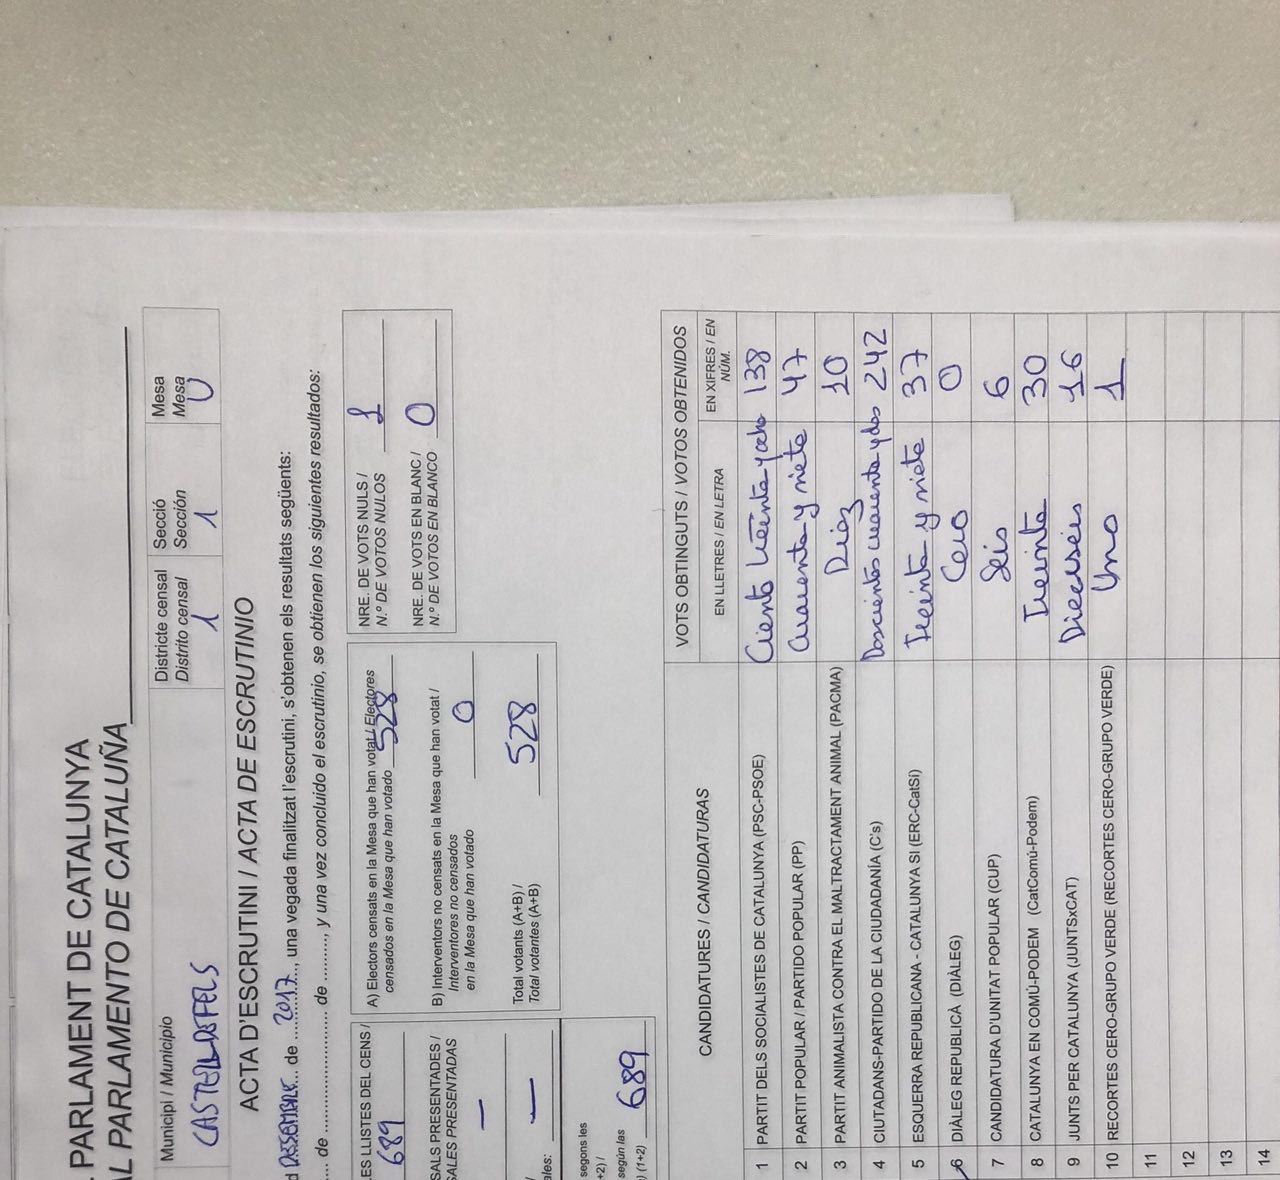 PARLAMENT DE CATALUNYA
AL PARLAMENTO DE CATALUÑA
Municipi / Municipio
CASTELLDEFELS
Districte censal
Distrito censal
1
Secció
Sección
1
Mesa
Mesa
U
ACTA D'ESCRUTINI / ACTA DE ESCRUTINIO
DESEMBRE de 2017, una vegada finalitzat l'escrutini, s'obtenen els resultats següents:
de ........................ de ........., y una vez concluido el escrutinio, se obtienen los siguientes resultados:
ES LLISTES DEL CENS /
689
SALS PRESENTADES /
SALES PRESENTADAS
—
ales: —
segons les
+2) /
según las
) (1+2) 689
A) Electors censats en la Mesa que han votat / Electores
censados en la Mesa que han votado 528
B) Interventors no censats en la Mesa que han votat /
Interventores no censados
en la Mesa que han votado 0
Total votants (A+B) /
Total votantes (A+B) 528
NRE. DE VOTS NULS /
N.º DE VOTOS NULOS 1
NRE. DE VOTS EN BLANC /
N.º DE VOTOS EN BLANCO 0
CANDIDATURES / CANDIDATURAS
VOTS OBTINGUTS / VOTOS OBTENIDOS
EN LLETRES / EN LETRA
EN XIFRES / EN NÚM.
1 PARTIT DELS SOCIALISTES DE CATALUNYA (PSC-PSOE) Ciento treinta y ocho 138
2 PARTIT POPULAR / PARTIDO POPULAR (PP) Cuarenta y siete 47
3 PARTIT ANIMALISTA CONTRA EL MALTRACTAMENT ANIMAL (PACMA) Diez 10
4 CIUTADANS-PARTIDO DE LA CIUDADANÍA (C's) Doscientos cuarenta y dos 242
5 ESQUERRA REPUBLICANA - CATALUNYA SI (ERC-CatSí) Treinta y siete 37
6 DIÀLEG REPUBLICÀ (DIÀLEG) Cero 0
7 CANDIDATURA D'UNITAT POPULAR (CUP) Seis 6
8 CATALUNYA EN COMÚ-PODEM (CatComú-Podem) Treinta 30
9 JUNTS PER CATALUNYA (JUNTSxCAT) Dieciseis 16
10 RECORTES CERO-GRUPO VERDE (RECORTES CERO-GRUPO VERDE) Uno 1
11
12
13
14